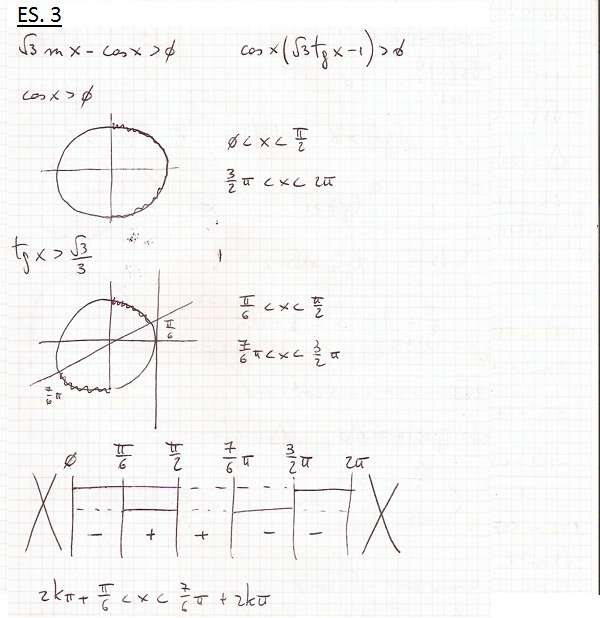 ES. 3
√3 sin x - cos x > 0 cos x (√3 tg x - 1) > 0
cos x > 0
0 < x < π/2
3/2 π < x < 2π
tg x > √3/3
π/6
π/6 < x < π/2
7/6 π < x < 3/2 π
7/6 π
0 π/6 π/2 7/6 π 3/2 π 2π
- + + - -
2kπ + π/6 < x < 7/6 π + 2kπ